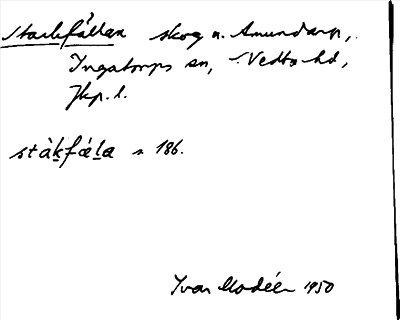 Stackfållan skog n. Amundarp,
Ingatorps sn, S. Vedbo hd,
Jkp. l.
stàkfála s 186.
Ivar Modéer 1950